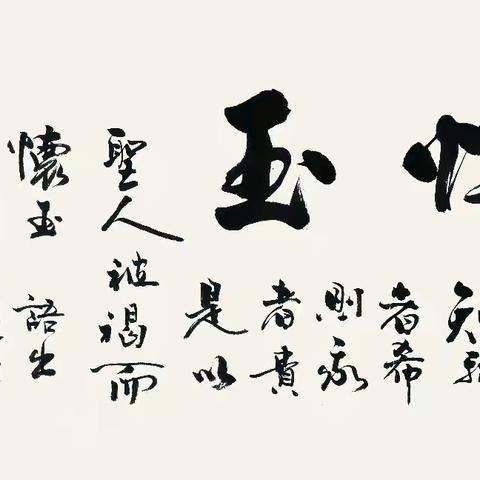 玉
者希
則我
者貴
是以
聖人被褐而
懷玉 語出